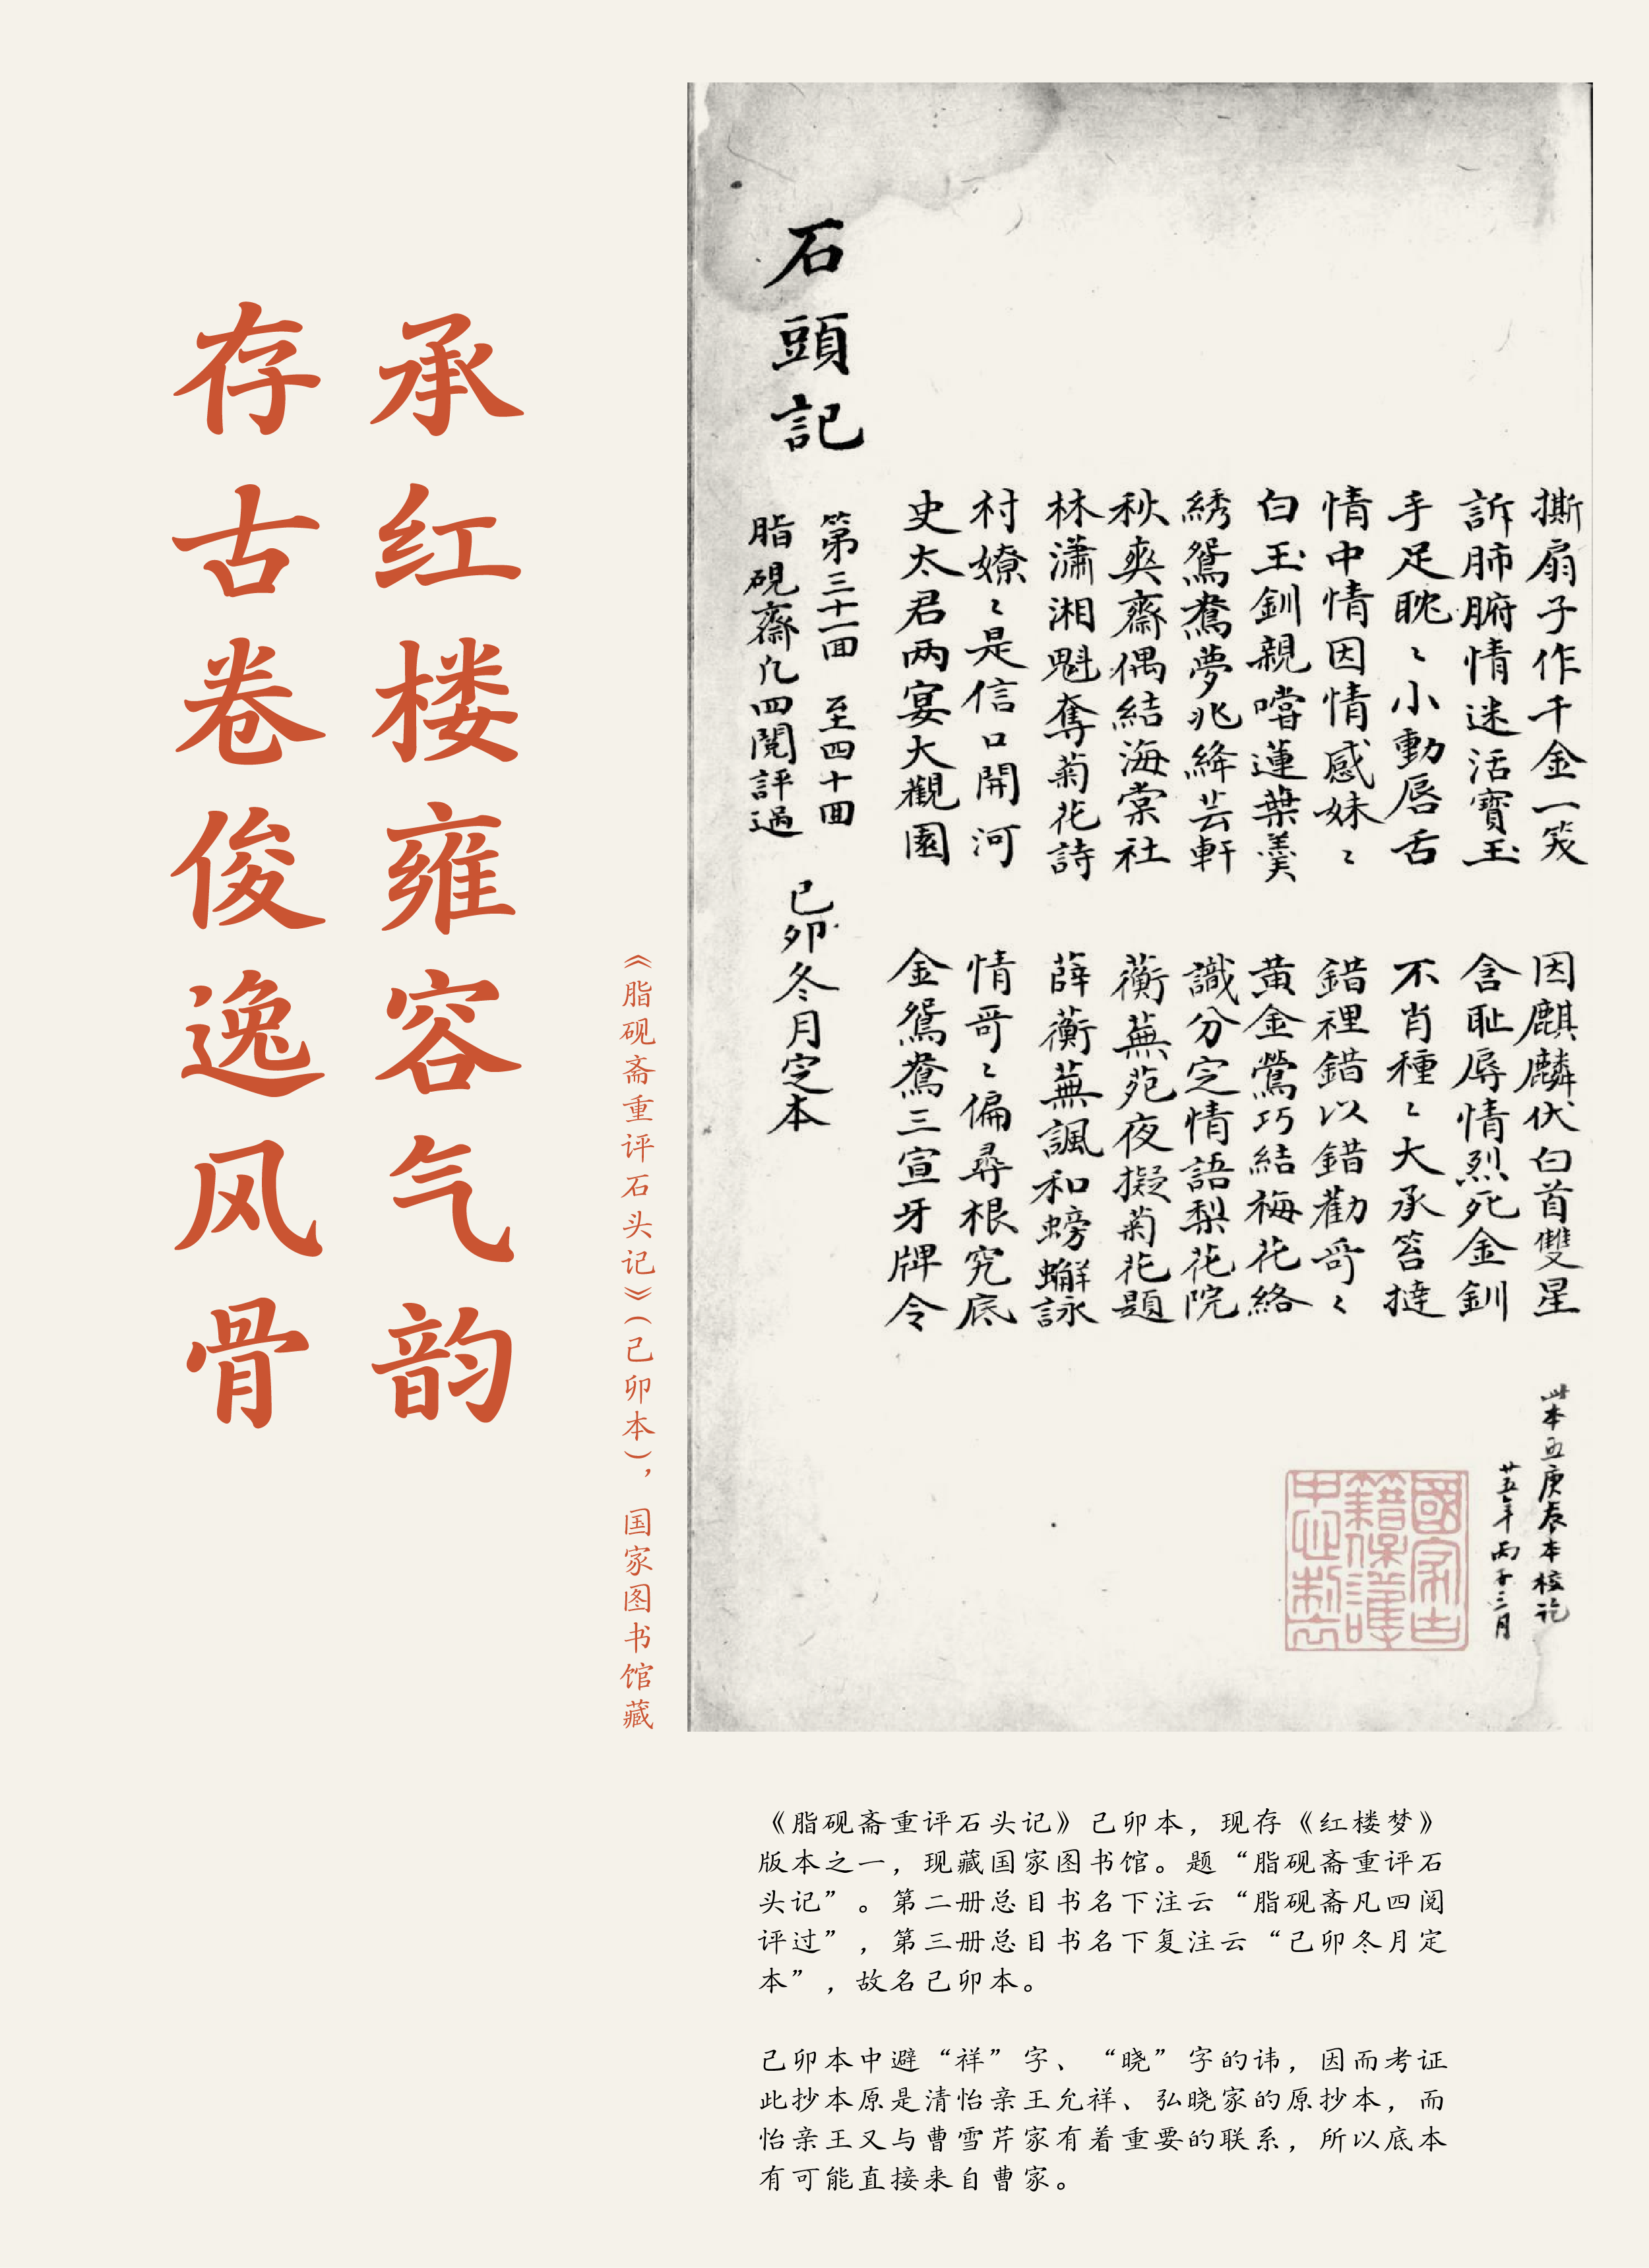 承红楼雍容气韵
存古卷俊逸风骨
《脂砚斋重评石头记》(己卯本)，国家图书馆藏
撕扇子作千金一笑 因麒麟伏白首雙星
訴肺腑情迷活寳玉 含耻辱情烈死金釧
手足眈〻小動唇舌 不肖種〻大承笞撻
情中情因情感妹〻 錯裡錯以錯勸哥〻
白玉釧親嚐蓮葉羹 黄金鶯巧結梅花絡
綉鴛鴦夢兆絳芸軒 識分定情語梨花院
秋爽齋偶結海棠社 蘅蕪苑夜擬菊花題
林瀟湘魁奪菊花詩 薛蘅蕪諷和螃蠏詠
村嫽〻是信口開河 情哥〻偏尋根究底
史太君两宴大觀園 金鴛鴦三宣牙牌令
石頭記
第三十一回 至四十回
脂硯齋凢四閱評過
己卯冬月定本
此本五庚辰本校讫
廿五年丙子三月
國家古
籍保護
中心制
《脂砚斋重评石头记》己卯本，现存《红楼梦》
版本之一，现藏国家图书馆。题“脂砚斋重评石
头记”。第二册总目书名下注云“脂砚斋凡四阅
评过”，第三册总目书名下复注云“己卯冬月定
本”，故名己卯本。
己卯本中避“祥”字、“晓”字的讳，因而考证
此抄本原是清怡亲王允祥、弘晓家的原抄本，而
怡亲王又与曹雪芹家有着重要的联系，所以底本
有可能直接来自曹家。